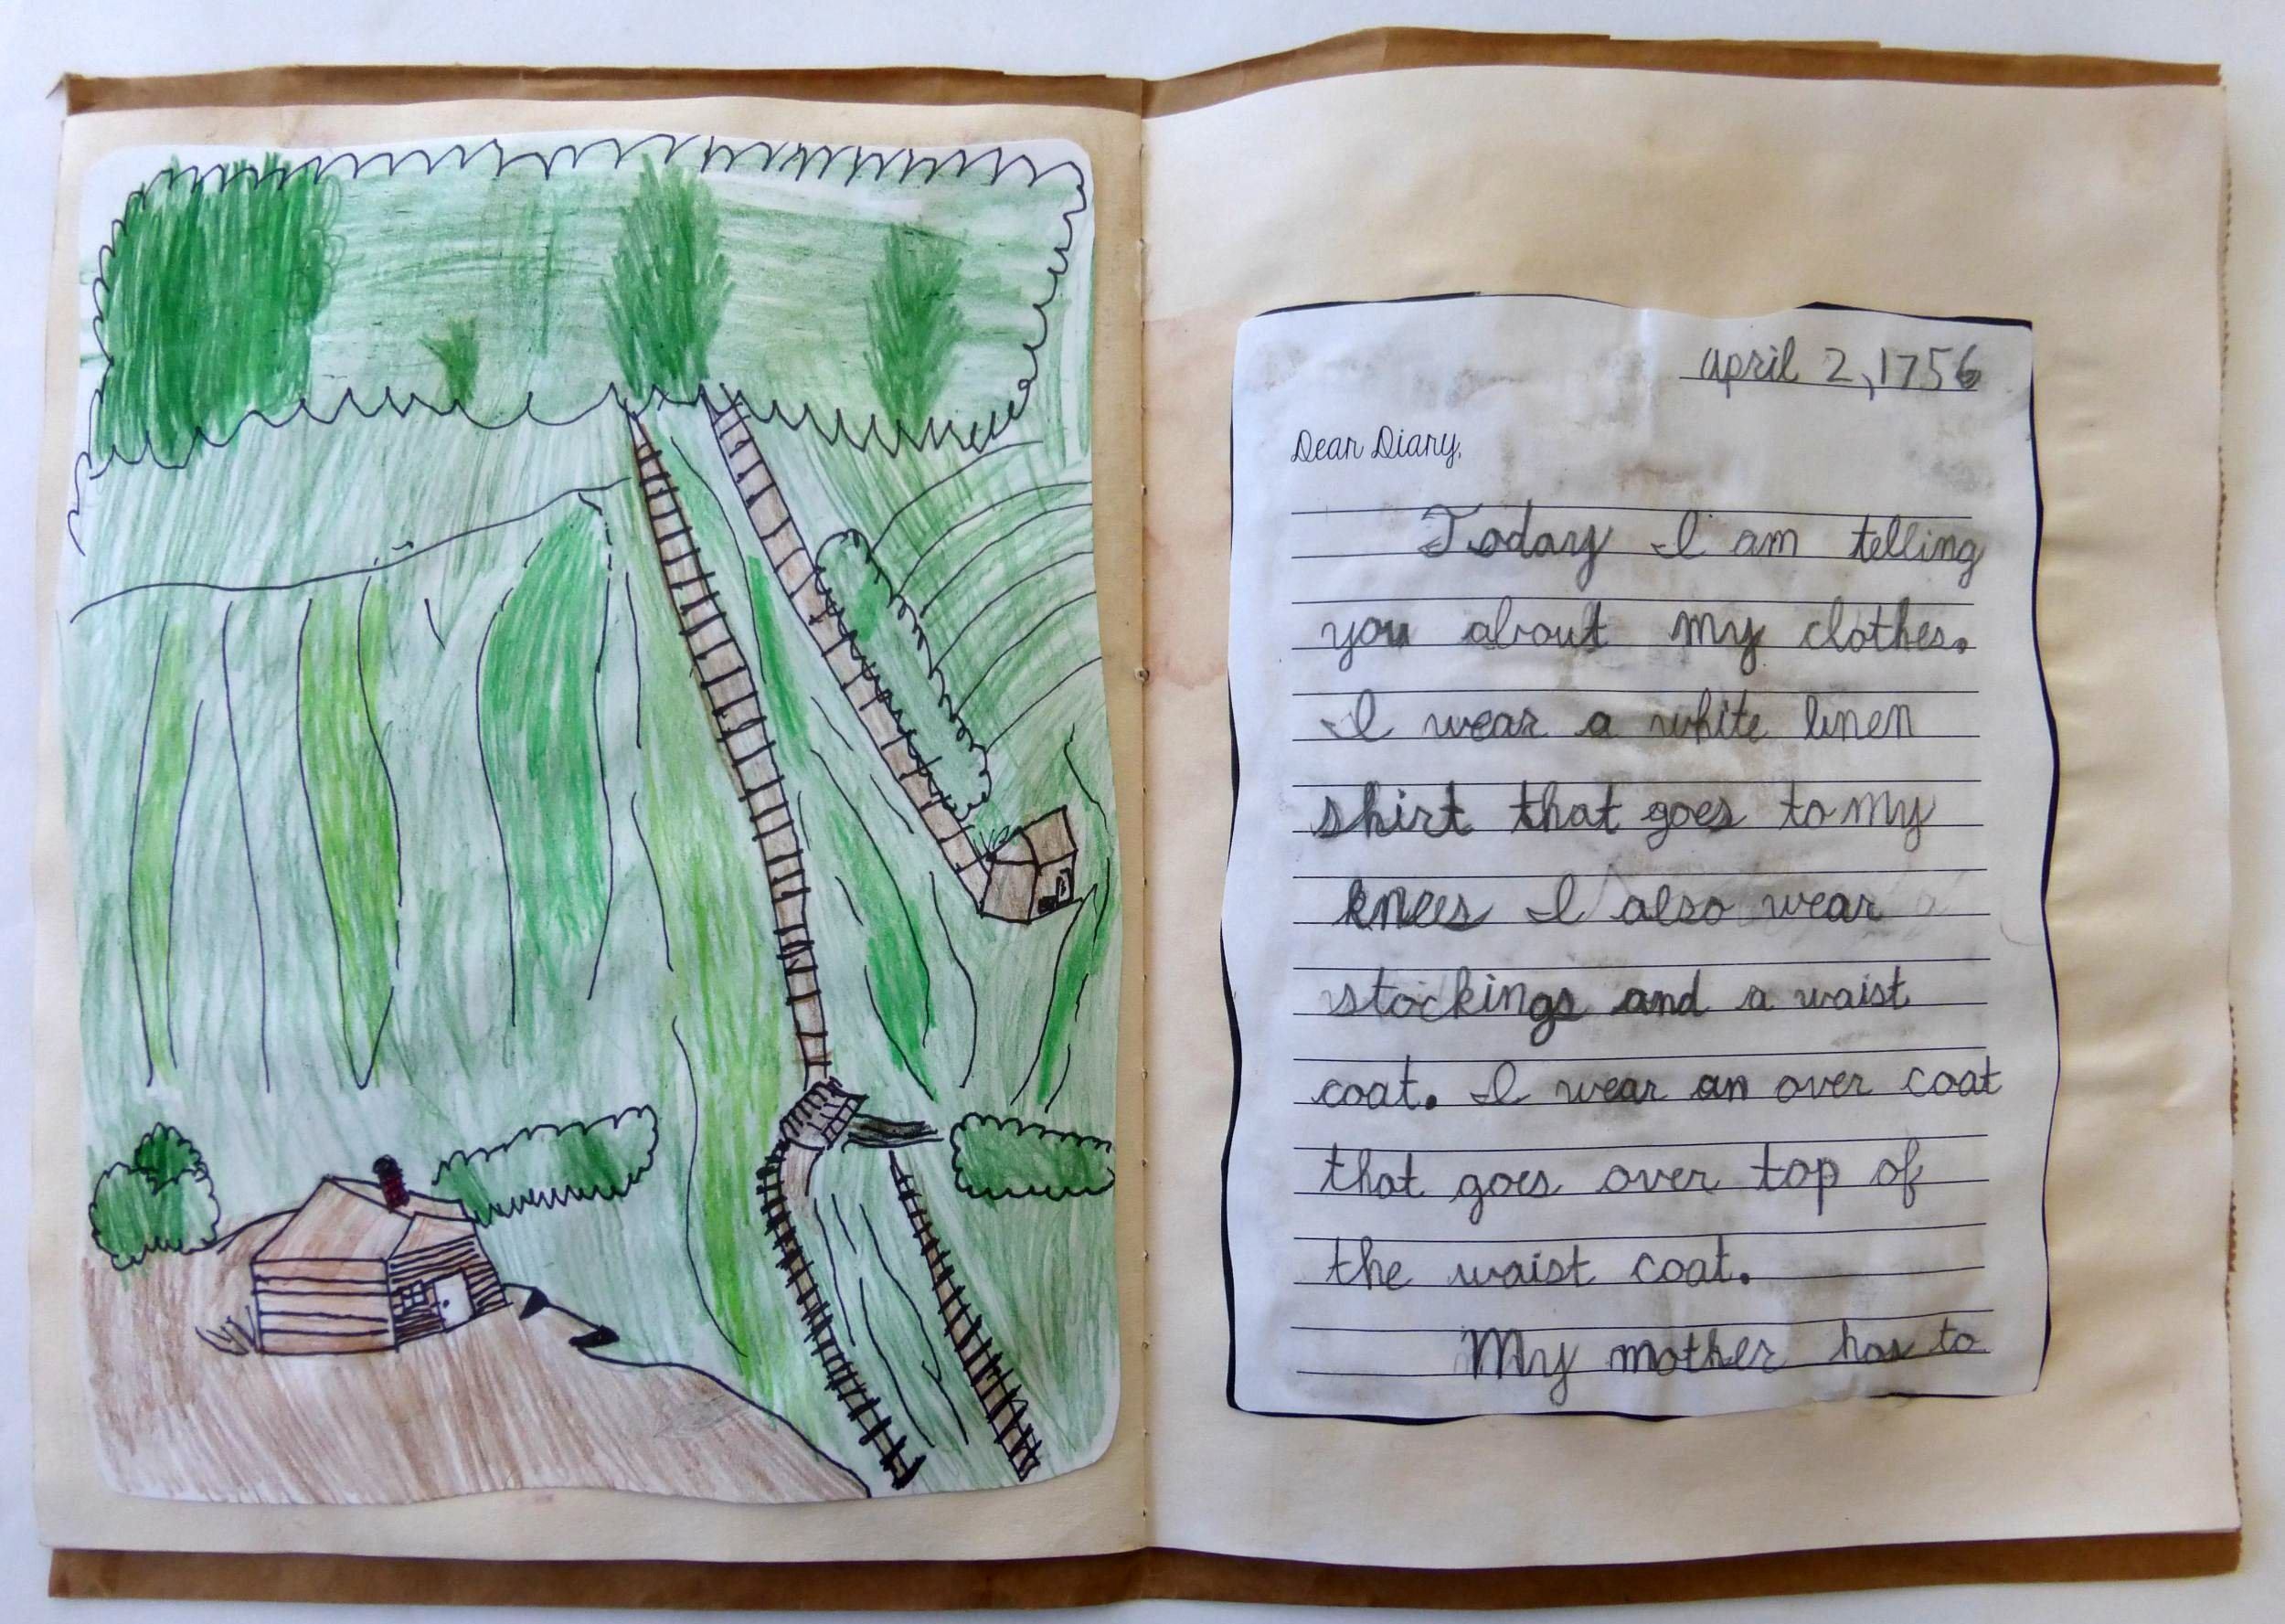 april 2, 1756
Dear Diary,
Today I am telling
you about my clothes.
I wear a white linen
shirt that goes to my
knees I also wear
stockings and a waist
coat. I wear an over coat
that goes over top of
the waist coat.
My mother has to